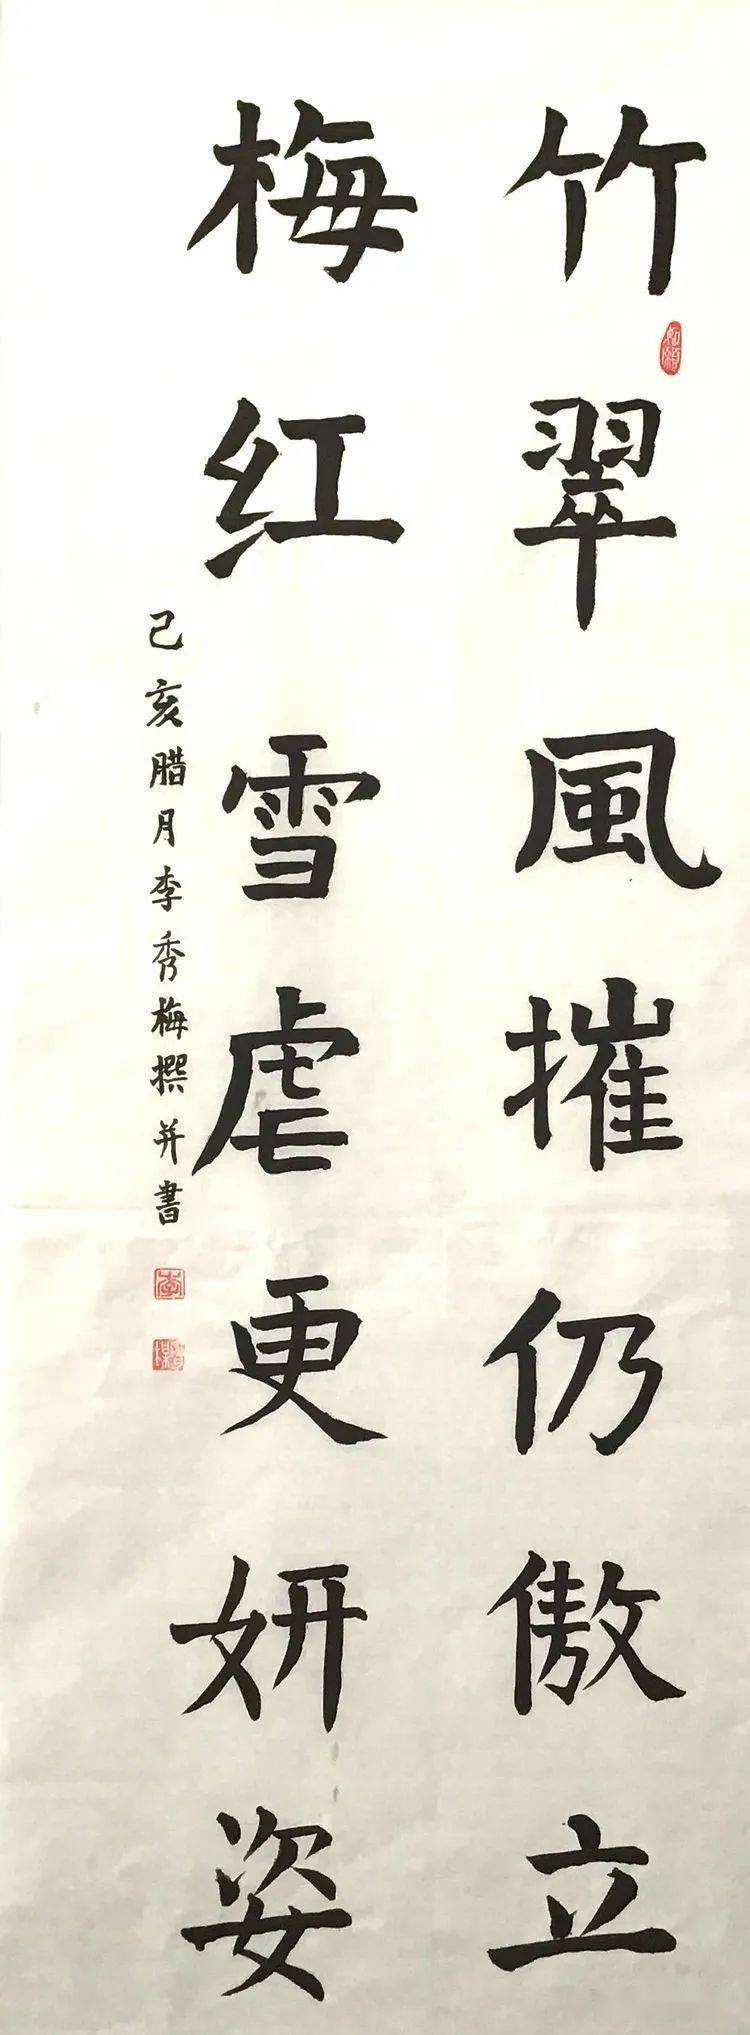 竹翠風摧仍傲立
梅红雪虐更妍姿
己亥腊月李秀梅撰并書
如願
李